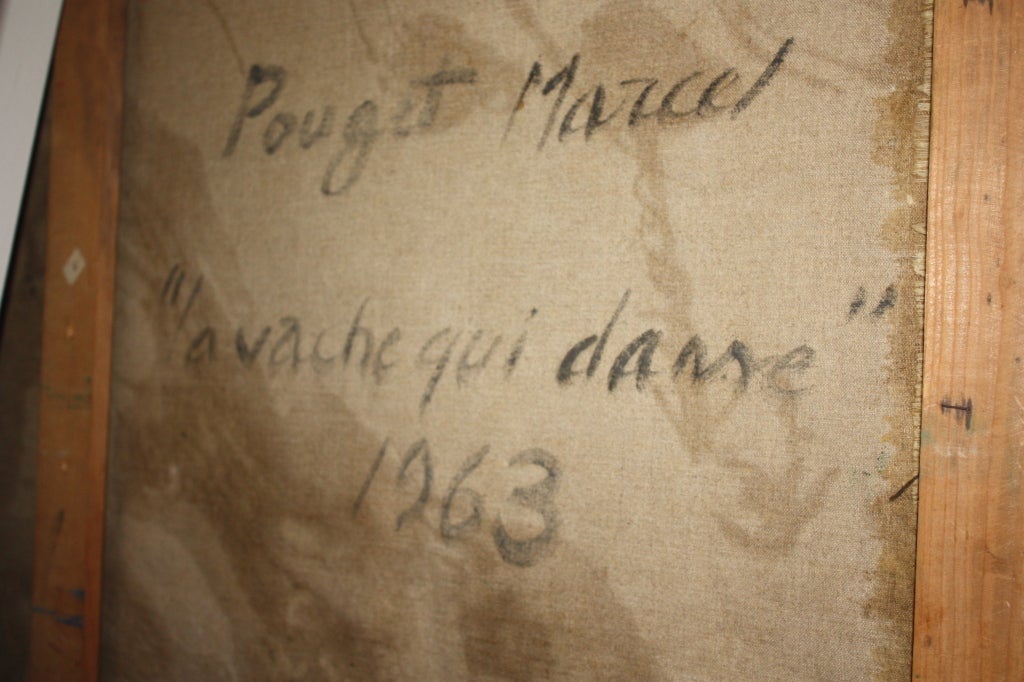 Pouget Marcel
"la vache qui danse"
1963